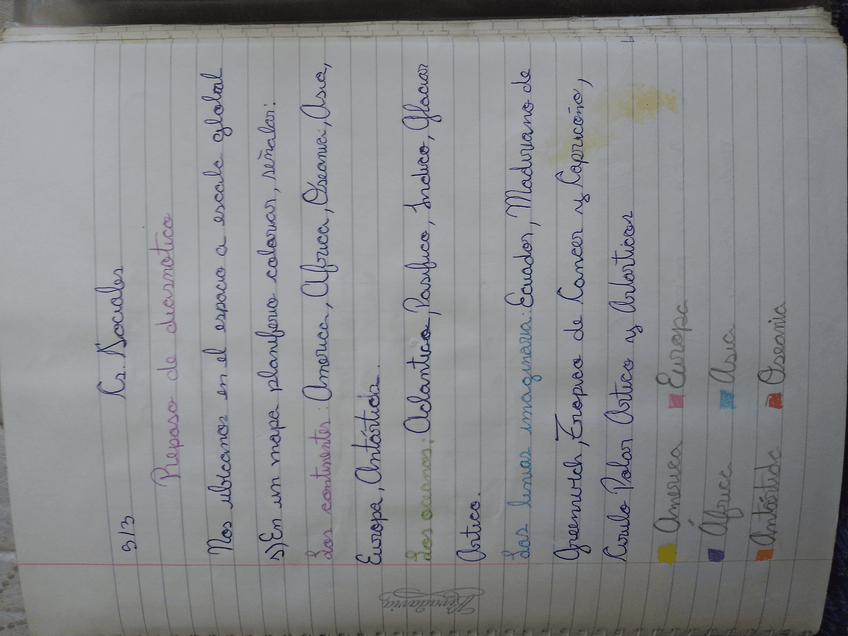 9/3 Cs. Sociales
Repaso de diasnotico
Nos ubicamos en el espacio a escala global
1) En un mapa planiferio colorear, señalar:
Los continentes: America, Africa, Oseania, Asia,
Europa, Antártida.
Los oceanos: Adlantico, Pasifico, Indico, Glaciar
Artico.
Las lineas imaginaria: Ecuador, Madiriano de
Greenwich, Tropico de Cancer y Capricoño,
Cirulo Polar Artico y Antarticos
America Europa
África Asia
Antártida Oseania